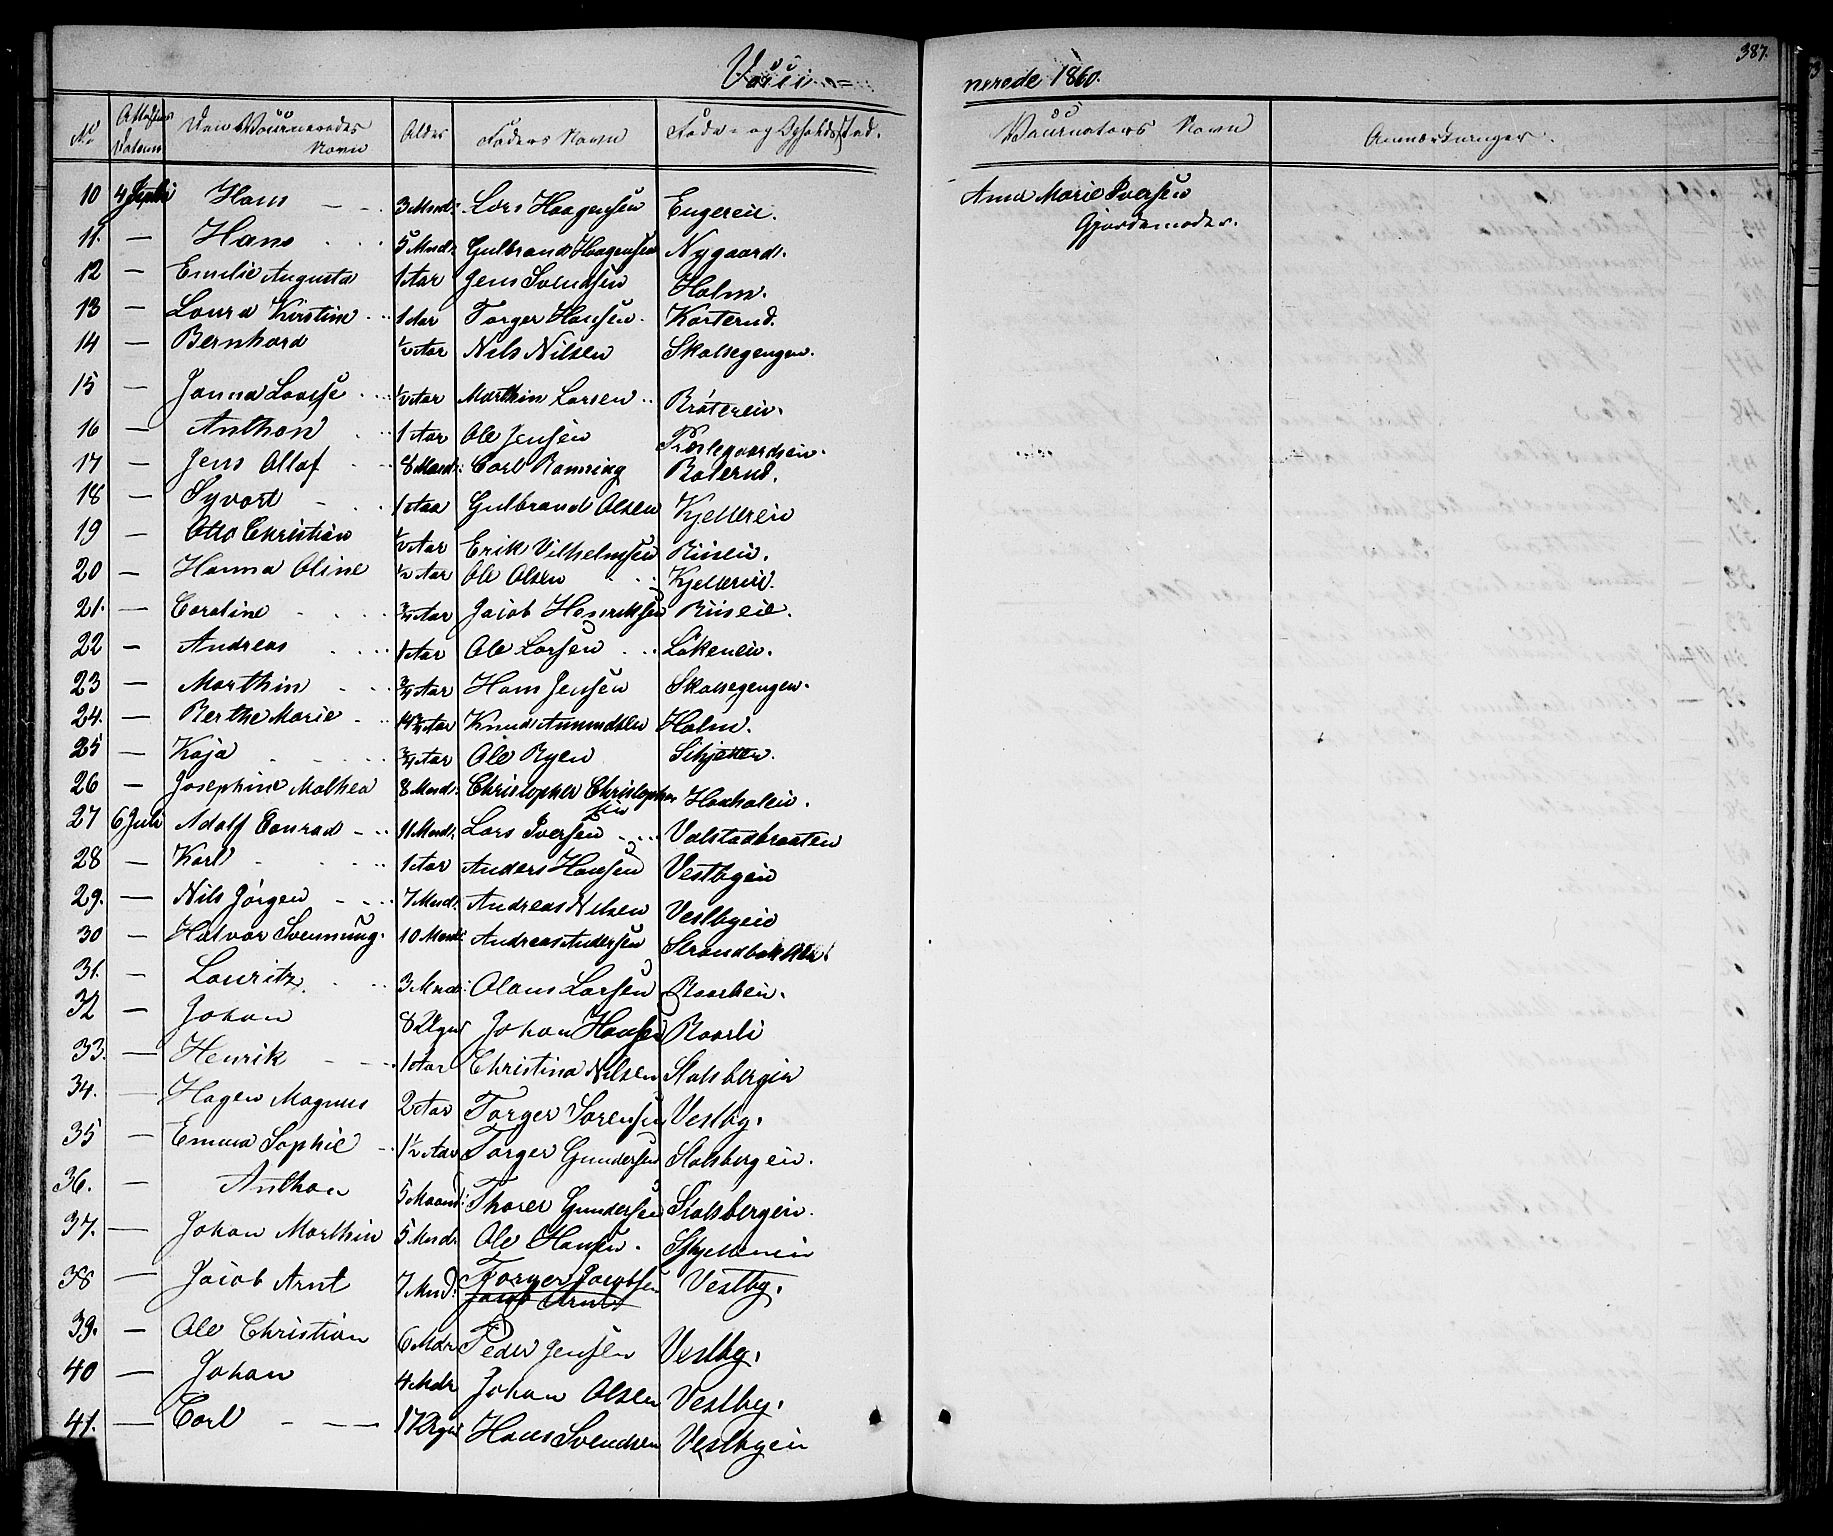 387.
nerede 1860.
No Attestens Datum Den Vaccineredes Navn Alder Faders Navn Føde- og Opholdssted. Vaccinateurs Navn Anmærkninger.
10 4 Hans 3 Mnd: Lars Haagensen Engereie. Anna Marie Iversen
Gjordemoder.
11. — Hans 5 Mnd: Gulbrand Haagensen Nygaard.
12 — Emilie Augusta 1 Aar Jens Svendsen Holm.
13 — Laura Kirstine 1 Aar Torger Hansen Korterud.
14 — Bernhard 1/2 Aar Nils Nilsen Skalsegengen.
15 — Janna Lovise 1/2 Aar Marthin Larsen Bråtereie.
16 — Anthon 1 Aar Ole Jensen Præstegaardseie.
17 — Jens Ollaf 8 Maand: Carl Ramming Raterud.
18 — Syvart 1 Aar Gulbrand Olsen Kjellereie
19 — Otto Christian 1/2 Aar Erik Vilhelmsen Riiseie.
20 — Hanna Oline 1/2 Aar Ole Olsen Kjellereie.
21. — Caroline 3/4 Aar Jacob Henriksen Riiseie.
22 — Andreas 1 Aar Ole Larsen Løkeneie.
23 — Marthin 3/4 Aar Hans Jensen Skalsegengen.
24. — Berthe Marie Aar Knud Amundsen Holm.
25 — Kaja 3/4 Aar Ole Ryen
26 — Josephine Mathea 8 Mnd: Christopher Christophersen
27 6 Juli Adolf Conrad 11 Mnd: Lars Iversen Valstadbraaten
28 — Karl 1 Aar Anders Hansen Vestbyeie
29. — Nils Jørgen 7 Mnd: Andreas Nilsen Vestbyeie
30 — Halvor Svennung 10 Mnd: Andreas Andersen Strandbakken
31. — Lauritz 3 Mnd: Olaus Larsen
32 — Johan 8 Uger Johan Hansen
33. — Henrik 1 Aar Christian Nilsen Stalsbergeie
34. — Hagen Magnus 2 Aar Torger Sorensen Vestby.
35 — Emma Sophie 1 1/2 Aar Torger Gundersen Stalsbergeie.
36. — Anthon 5 Maand: Thorer Gundersen Stalsbergeie.
37. — Johan Marthin 5 Mnd: Ole Hansen.
38 — Jacob Arnt 7 Mnd: Torger Jacobsen Vestby.
Jacob Arnt
39. — Ole Christian 6 Mdr Peder Jensen Vestby.
40 — Johan 4 Mdr Johan Olsen Vestby.
41. — Carl 17 Uger Hans Svendsen Vestbyeie